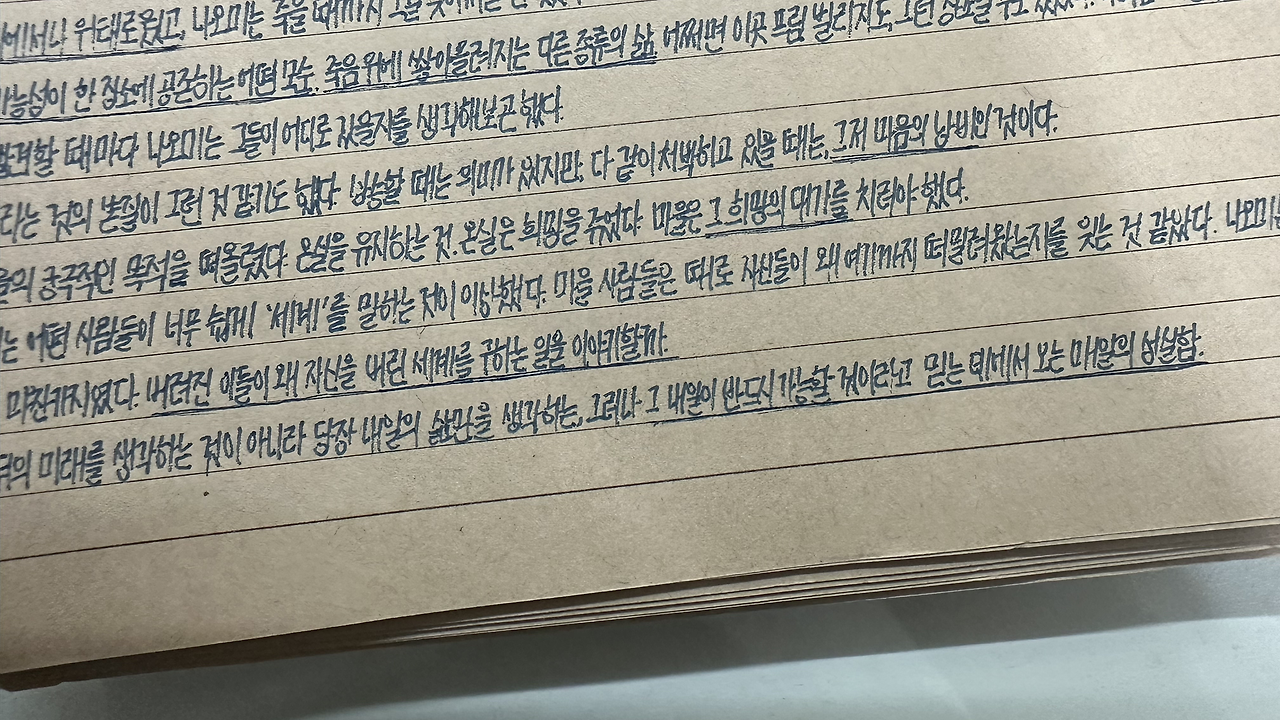 에서나 위태로웠고, 나오미는 죽을 때까지 그걸
가능성이 한 장소에 공존하는 어떤 모순. 죽음 위에 쌓아올려지는 다른 종류의 삶. 어쩌면 이곳 프림 빌리지도 그런 장소일
발견할 때마다 나오미는 그들이 어디로 갔을지를 생각해보곤 했다.
라는 것의 본질이 그런 것 같기도 했다. 낭송할 때는 의미가 있지만, 다 같이 처박히고 있을 때는, 그저 마음의 낭비인 것이다.
을의 궁극적인 목적을 떠올렸다. 온실을 유지하는 것. 온실은 희망을 주었다. 마을은 그 희망의 대가를 치러야 했다.
는 어떤 사람들이 너무 쉽게 '세계'를 말하는 것이 이상했다. 마을 사람들은 때로 자신들이 왜 여기까지 떠밀려왔는지를 잊는 것 같았다. 나오미는
마찬가지였다. 버려진 이들이 왜 자신을 버린 세계를 구하는 일을 이야기할까.
뒤의 미래를 생각하는 것이 아니라 당장 내일의 삶만을 생각하는, 그러나 그 내일이 반드시 가능할 것이라고 믿는 데에서 오는 매일의 성실함.